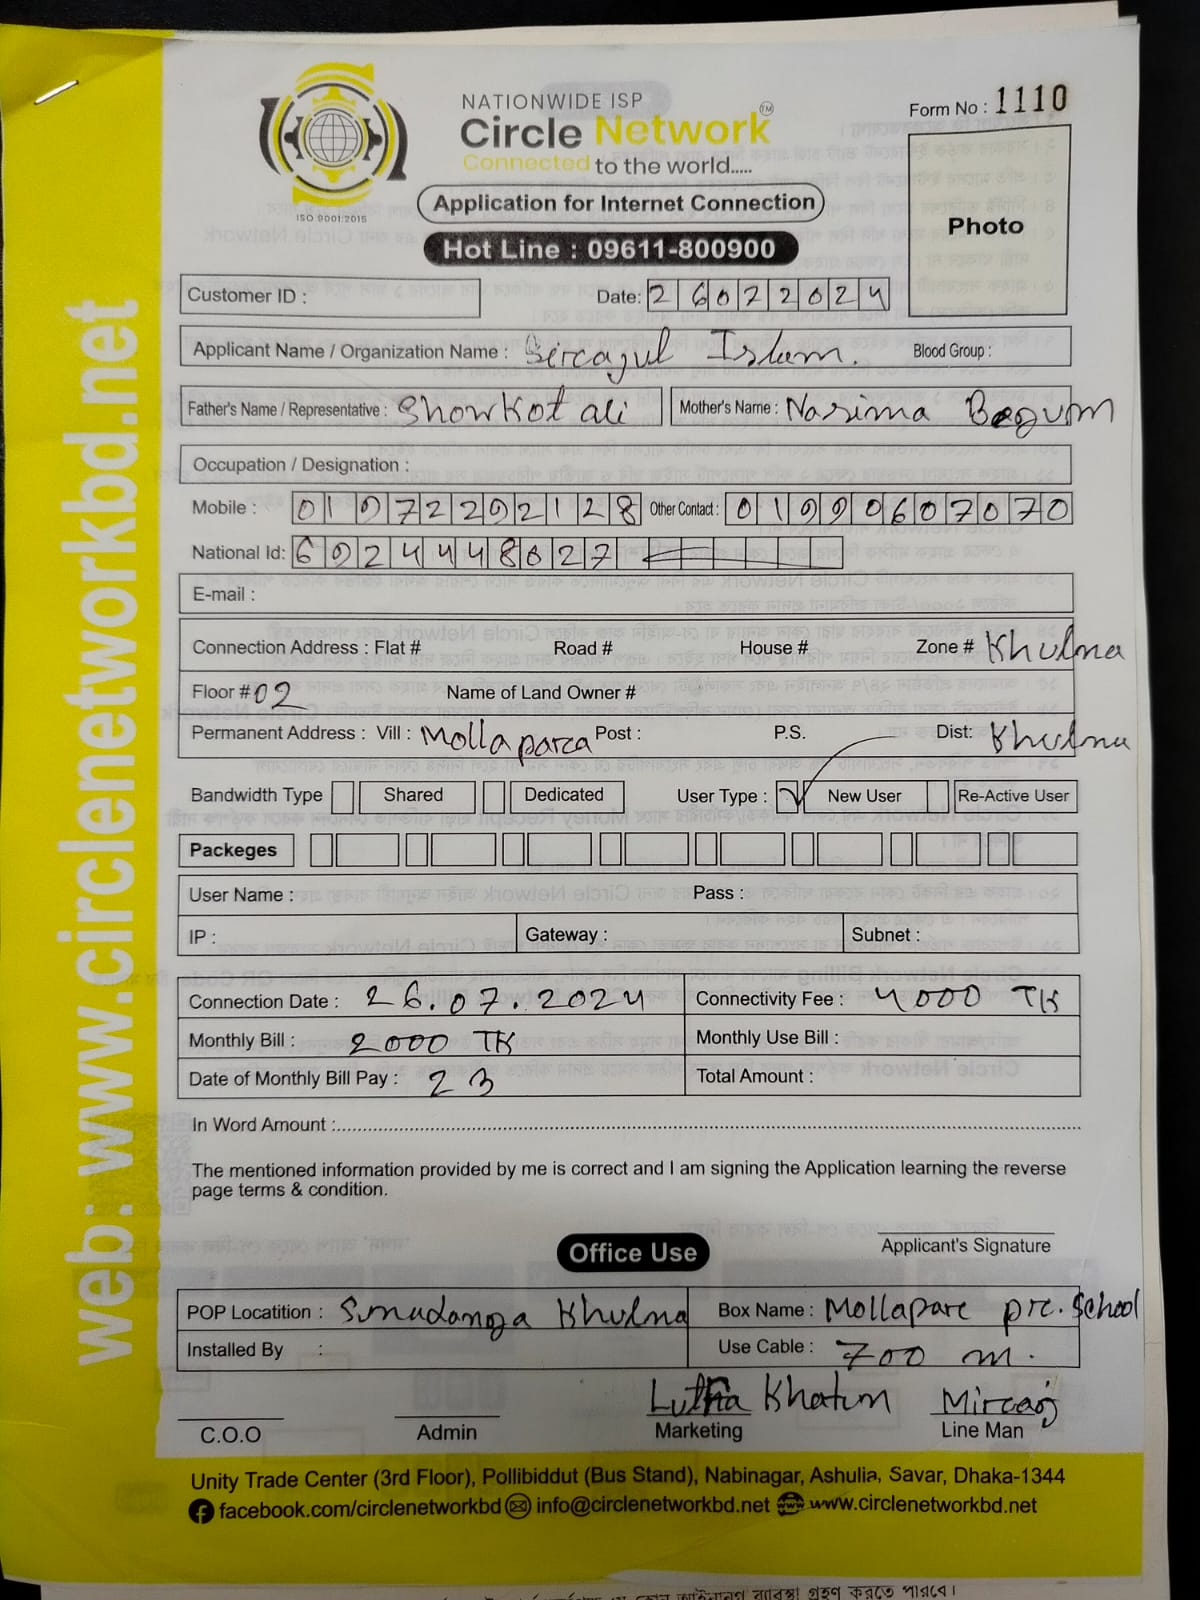 NATIONWIDE ISP
Circle Network TM
Connected to the world.....
ISO 9001:2015
Form No : 1110
Application for Internet Connection
Photo
Hot Line : 09611-800900
Customer ID :
Date: 26072024
Applicant Name / Organization Name : Sircajul Islam. Blood Group :
Father's Name / Representative : Showkot ali Mother's Name : Nasima Begum
Occupation / Designation :
Mobile : 01972292128 Other Contact : 01990607070
National Id: 6924448627
E-mail :
Connection Address : Flat # Road # House # Zone # Khulna
Floor # 02 Name of Land Owner #
Permanent Address : Vill : Mollaparca Post : P.S. Dist: Khulna
Bandwidth Type Shared Dedicated User Type : New User Re-Active User
Packeges
User Name : Pass :
IP : Gateway : Subnet :
Connection Date : 26.07.2024 Connectivity Fee : 4000 TK
Monthly Bill : 2000 TK Monthly Use Bill :
Date of Monthly Bill Pay : 23 Total Amount :
In Word Amount :
The mentioned information provided by me is correct and I am signing the Application learning the reverse
page terms & condition.
Applicant's Signature
Office Use
POP Locatition : Sonadanga Khulna Box Name : Mollapare pre. School
Installed By : Use Cable : 700 m.
Lutfia Khatun Mircaj
C.O.O Admin Marketing Line Man
Unity Trade Center (3rd Floor), Pollibiddut (Bus Stand), Nabinagar, Ashulia, Savar, Dhaka-1344
facebook.com/circlenetworkbd info@circlenetworkbd.net www.circlenetworkbd.net
web: www.circlenetworkbd.net
ব্যবস্থা গ্রহণ করতে পারবে।